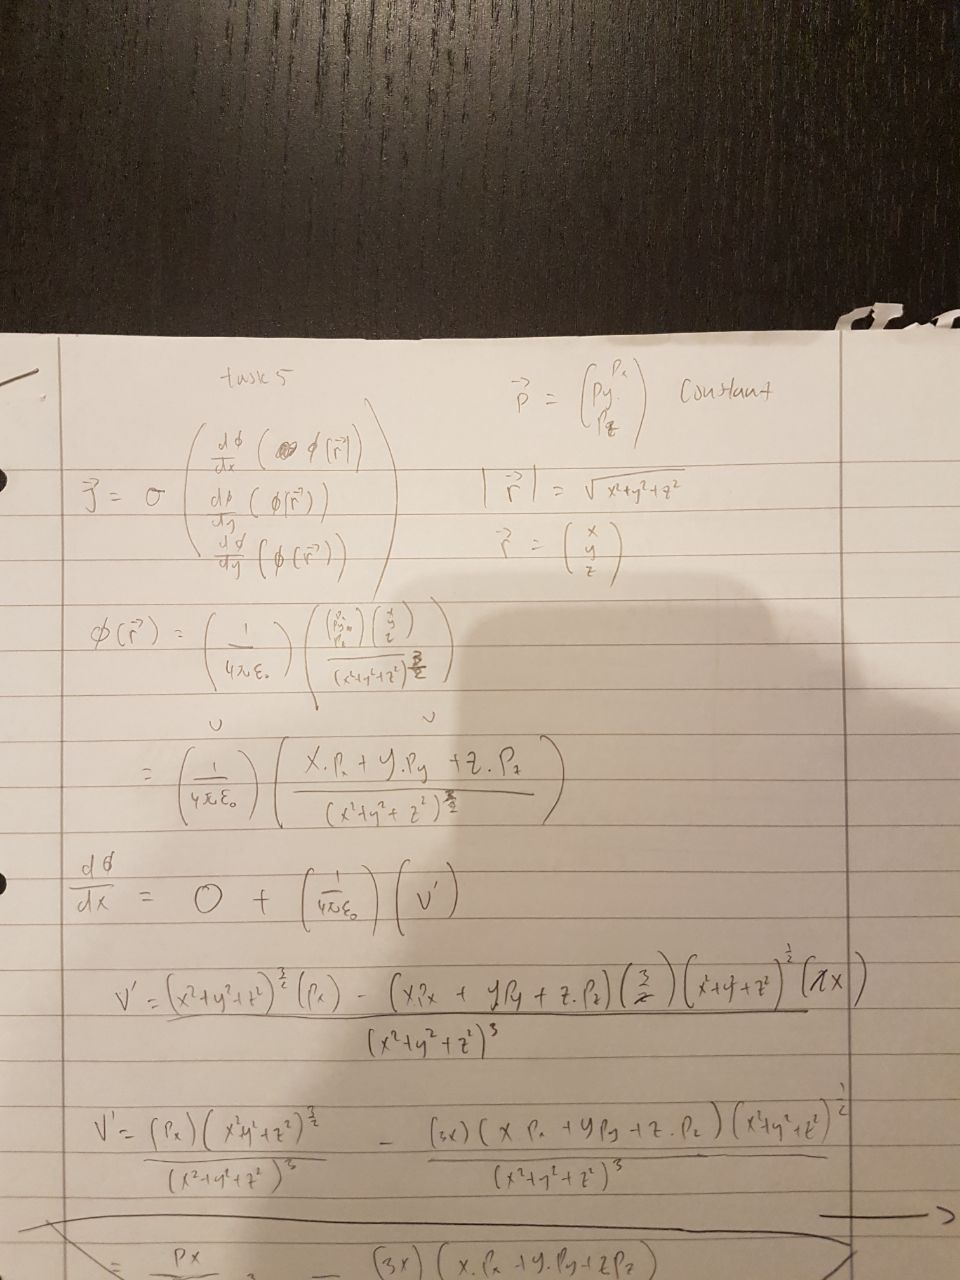 task 5
p⃗ = (Px Py Pz) Constant
J⃗ = σ ( dϕ/dx ( ϕ(r⃗) ) dϕ/dy ( ϕ(r⃗) ) dϕ/dy ( ϕ(r⃗) ) )
|r⃗| = √x²+y²+z²
r⃗ = (x y z)
ϕ(r⃗) = (1/4πε₀) ((Px Py Pz)(x y z)/(x²+y²+z²)^3/2)
υ υ
= (1/4πε₀) (x.Px + y.Py + z.Pz/(x²+y²+z²)^3/2)
dϕ/dx = 0 + (1/4πε₀)(v′)
v′ = (x²+y²+z²)^3/2 (Px) - (xPx + yPy + z.Pz)(3/2)(x²+y²+z²)^1/2 (2x)/(x²+y²+z²)³
v′ = (Px)(x²+y²+z²)^3/2/(x²+y²+z²)³ - (3x)(x Px + yPy + z.Pz)(x²+y²+z²)^1/2/(x²+y²+z²)³
= Px - (3x)(x.Px + y.Py + zPz)